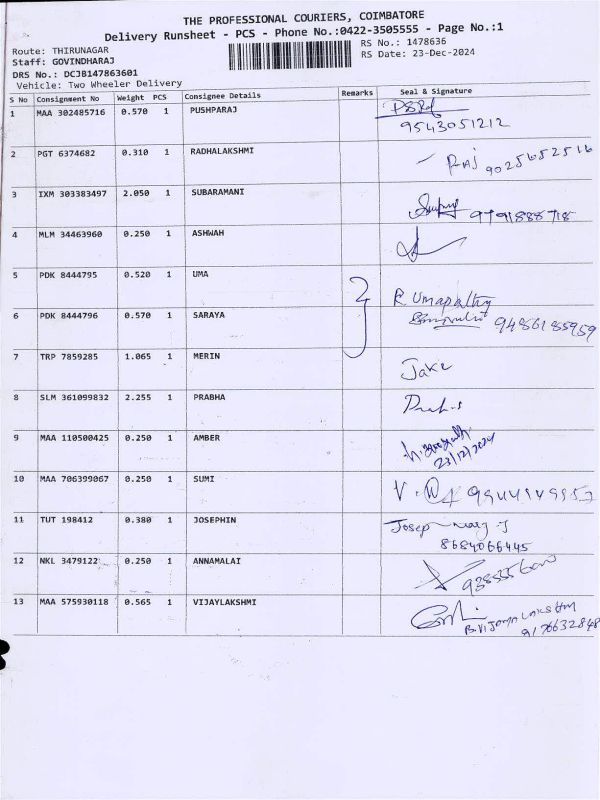 THE PROFESSIONAL COURIERS, COIMBATORE
Delivery Runsheet - PCS - Phone No.:0422-3505555 - Page No.:1
Route: THIRUNAGAR
RS No.: 1478636
Staff: GOVINDHARAJ
RS Date: 23-Dec-2024
DRS No.: DCJB147863601
Vehicle: Two Wheeler Delivery
S No Consignment No Weight PCS Consignee Details Remarks Seal & Signature
1 MAA 302485716 0.570 1 PUSHPARAJ
9543051212
2 PGT 6374682 0.310 1 RADHALAKSHMI
RAJ 9025652516
3 IXM 303383497 2.050 1 SUBARAMANI
9791888718
4 MLM 34463960 0.250 1 ASHWAH
5 PDK 8444795 0.520 1 UMA
R Umapathy
6 PDK 8444796 0.570 1 SARAYA
9486185959
7 TRP 7859285 1.065 1 MERIN
Jake
8 SLM 361099832 2.255 1 PRABHA
9 MAA 110500425 0.250 1 AMBER
23/12/2024
10 MAA 706399067 0.250 1 SUMI
11 TUT 198412 0.380 1 JOSEPHIN
Josep mary J
8684066445
12 NKL 3479122 0.250 1 ANNAMALAI
13 MAA 575930118 0.565 1 VIJAYLAKSHMI
9176632848